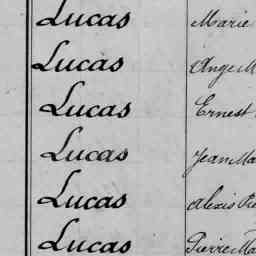 Lucas Marie
Lucas Ange M
Lucas Ernest
Lucas Jean Ma
Lucas Alexis Pie
Lucas Pierre Ma